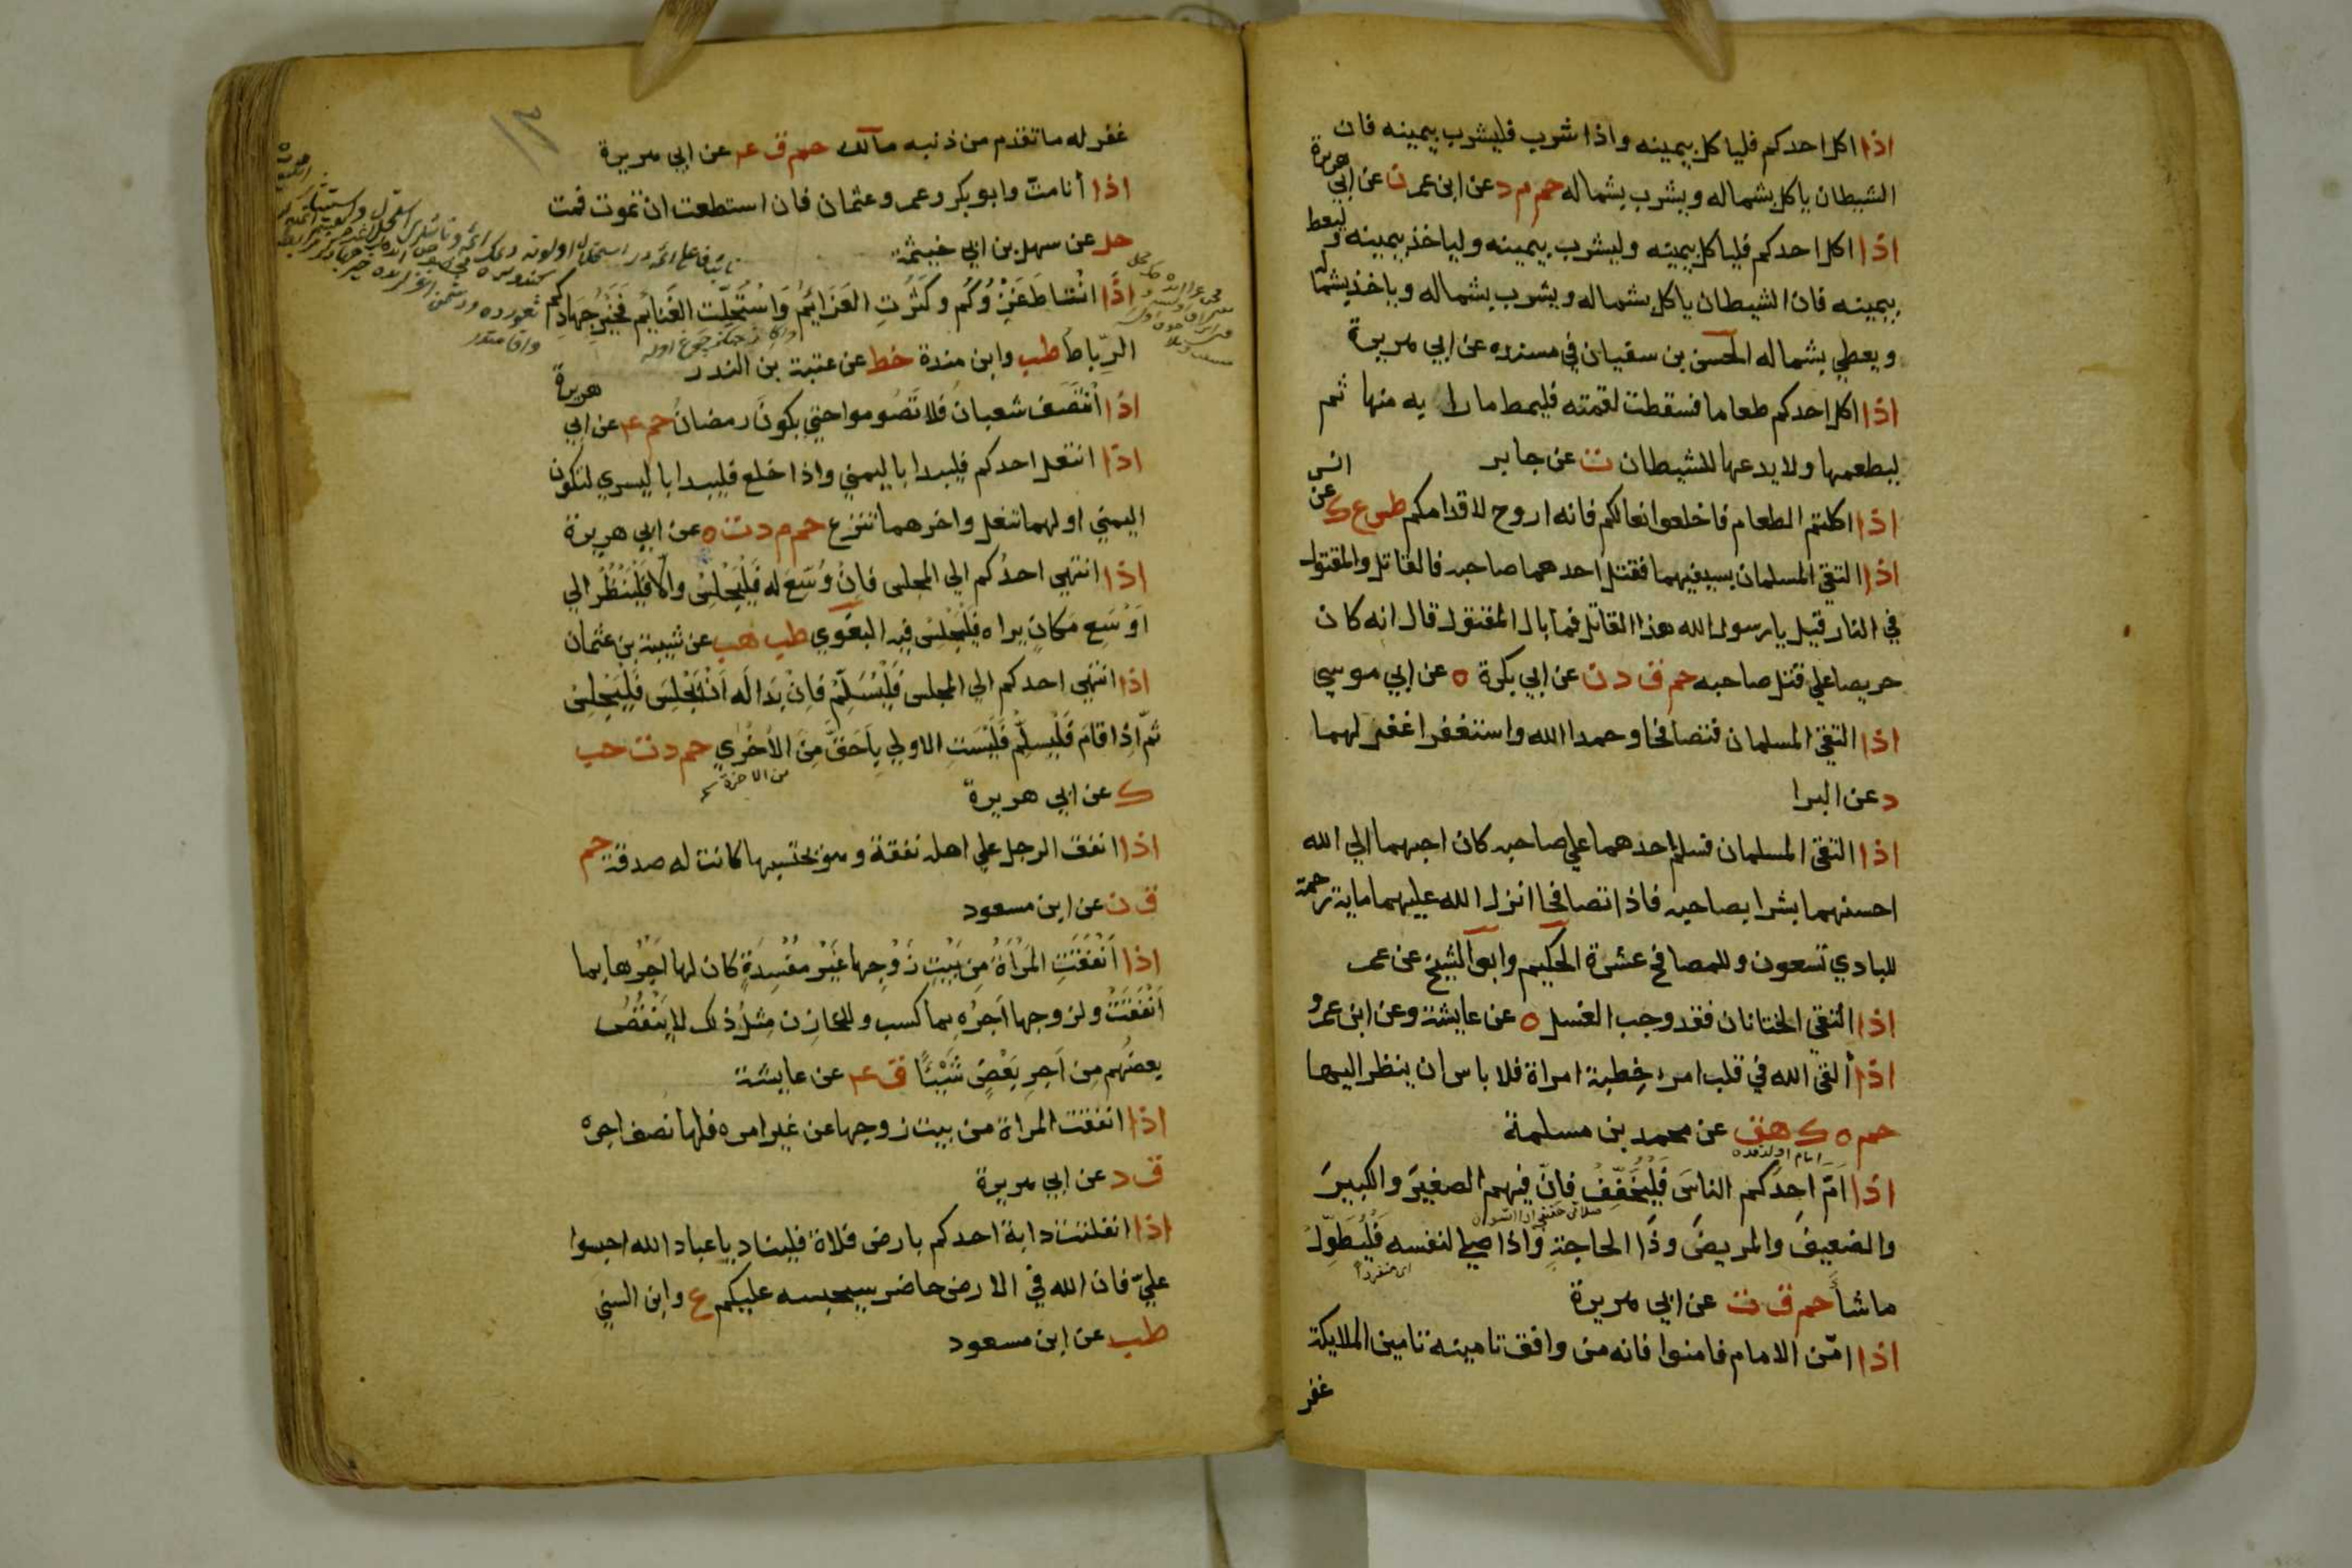 اذا اكل احدكم فلياكل بيمينه واذا شرب فليشرب بيمينه فان
الشيطان ياكل بشماله ويشرب بشماله حم م د عن ابن عمر ن عن ابي هريرة
اذا اكل احدكم فلياكل بيمينه وليشرب بيمينه ولياخذ بيمينه وليعط
بيمينه فان الشيطان ياكل بشماله ويشرب بشماله وياخذ بشماله
ويعطي بشماله الحسن بن سفيان في مسنده عن ابي هريرة
اذا اكل احدكم طعاما فسقطت لقمته فليمط ما رابه منها ثم
ليطعمها ولا يدعها للشيطان ت عن جابر
اذا اكلتم الطعام فاخلعوا نعالكم فانه اروح لاقدامكم طس ع ك عن انس
اذا التقي المسلمان بسيفيهما فقتل احدهما صاحبه فالقاتل والمقتول
في النار قيل يا رسول الله هذا القاتل فما بال المقتول قال انه كان
حريصا علي قتل صاحبه حم ق د ن عن ابي بكرة ه عن ابي موسي
اذا التقي المسلمان فتصافحا وحمدا الله واستغفرا غفر لهما
د عن البرا
اذا التقي المسلمان فسلم احدهما علي صاحبه كان احبهما الي الله
احسنهما بشرا بصاحبه فاذا تصافحا انزل الله عليهما ماية رحمة
للبادي تسعون وللمصافح عشرة الحكيم وابو الشيخ عن عمر
اذا التقي الختانان فقد وجب الغسل ه عن عايشة وعن ابن عمرو
اذا ألقي الله في قلب امرء خطبة امراة فلا باس ان ينظر اليها
حم ه ك هق عن محمد بن مسلمة
اذا امّ احدكم الناس فليخفف فانّ فيهم الصغير والكبير
والضعيف والمريض وذا الحاجة واذا صلي لنفسه فليطوّل
اى منفردا
ماشأ حم ق ت عن ابي هريرة
اذا امّن الامام فامنوا فانه من وافق تامينه تامين الملايكة
غفر
غفر له ما تقدم من ذنبه مالك حم ق ع عن ابي هريرة
اذا أنا متّ وابو بكر وعمر وعثمان فان استطعت ان تموت فمت
حل عن سهل بن ابي خيثمة
اذا انتاط غزوكم وكثرت العزايم واستحلت الغنايم فخير جهادكم
الرّباط طب وابن مندة خط عن عتبة بن الندر
اذا انتصف شعبان فلا تصوموا حتي يكون رمضان حم ع عن ابي هريرة
اذا انتعل احدكم فليبدا باليمني واذا خلع فليبدا باليسري لتكون
اليمني اولهما تنعل واخرهما تنزع حم م د ت ه عن ابي هريرة
اذا انتهي احدكم الي المجلس فان وسع له فليجلس والا فلينظر الي
اوسع مكان يراه فليجلس فيه البغوي طب هب عن شيبة بن عثمان
اذا انتهي احدكم الي المجلس فليسلّم فان بدا له ان يجلس فليجلس
ثمّ اذا قام فليسلّم فليست الاولي باحقّ من الأخري حم د ت حب
من الاخرة
ك عن ابي هريرة
اذا انفق الرجل علي اهله نفقة وهو يحتسبها كانت له صدقة حم
ق ن عن ابن مسعود
اذا انفقت المرأة من بيت زوجها غير مفسدة كان لها اجرها بما
انفقت ولزوجها اجره بما كسب وللخازن مثل ذلك لا ينقص
بعضهم من اجر بعض شيئا ق ع عن عايشة
اذا انفقت المراة من بيت زوجها عن غير امره فلها نصف اجره
ق د عن ابي هريرة
اذا انفلتت دابة احدكم بارض فلاة فليناد يا عباد الله احبسوا
عليّ فان الله في الارض حاضر سيحبسه عليكم ع وابن السني
طب عن ابن مسعود